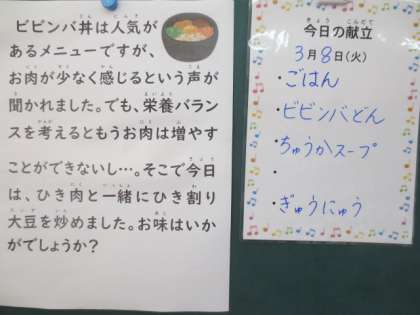 ビビンバ丼は人気が
あるメニューですが、
お肉が少なく感じるという声が
聞かれました。でも、栄養バラン
スを考えるともうお肉は増やす
ことができないし…。そこで今日
は、ひき肉と一緒にひき割り
大豆を炒めました。お味はいか
がでしょうか？
今日の献立
3月8日(火)
・ごはん
・ビビンバどん
・ちゅうかスープ
・
・ぎゅうにゅう